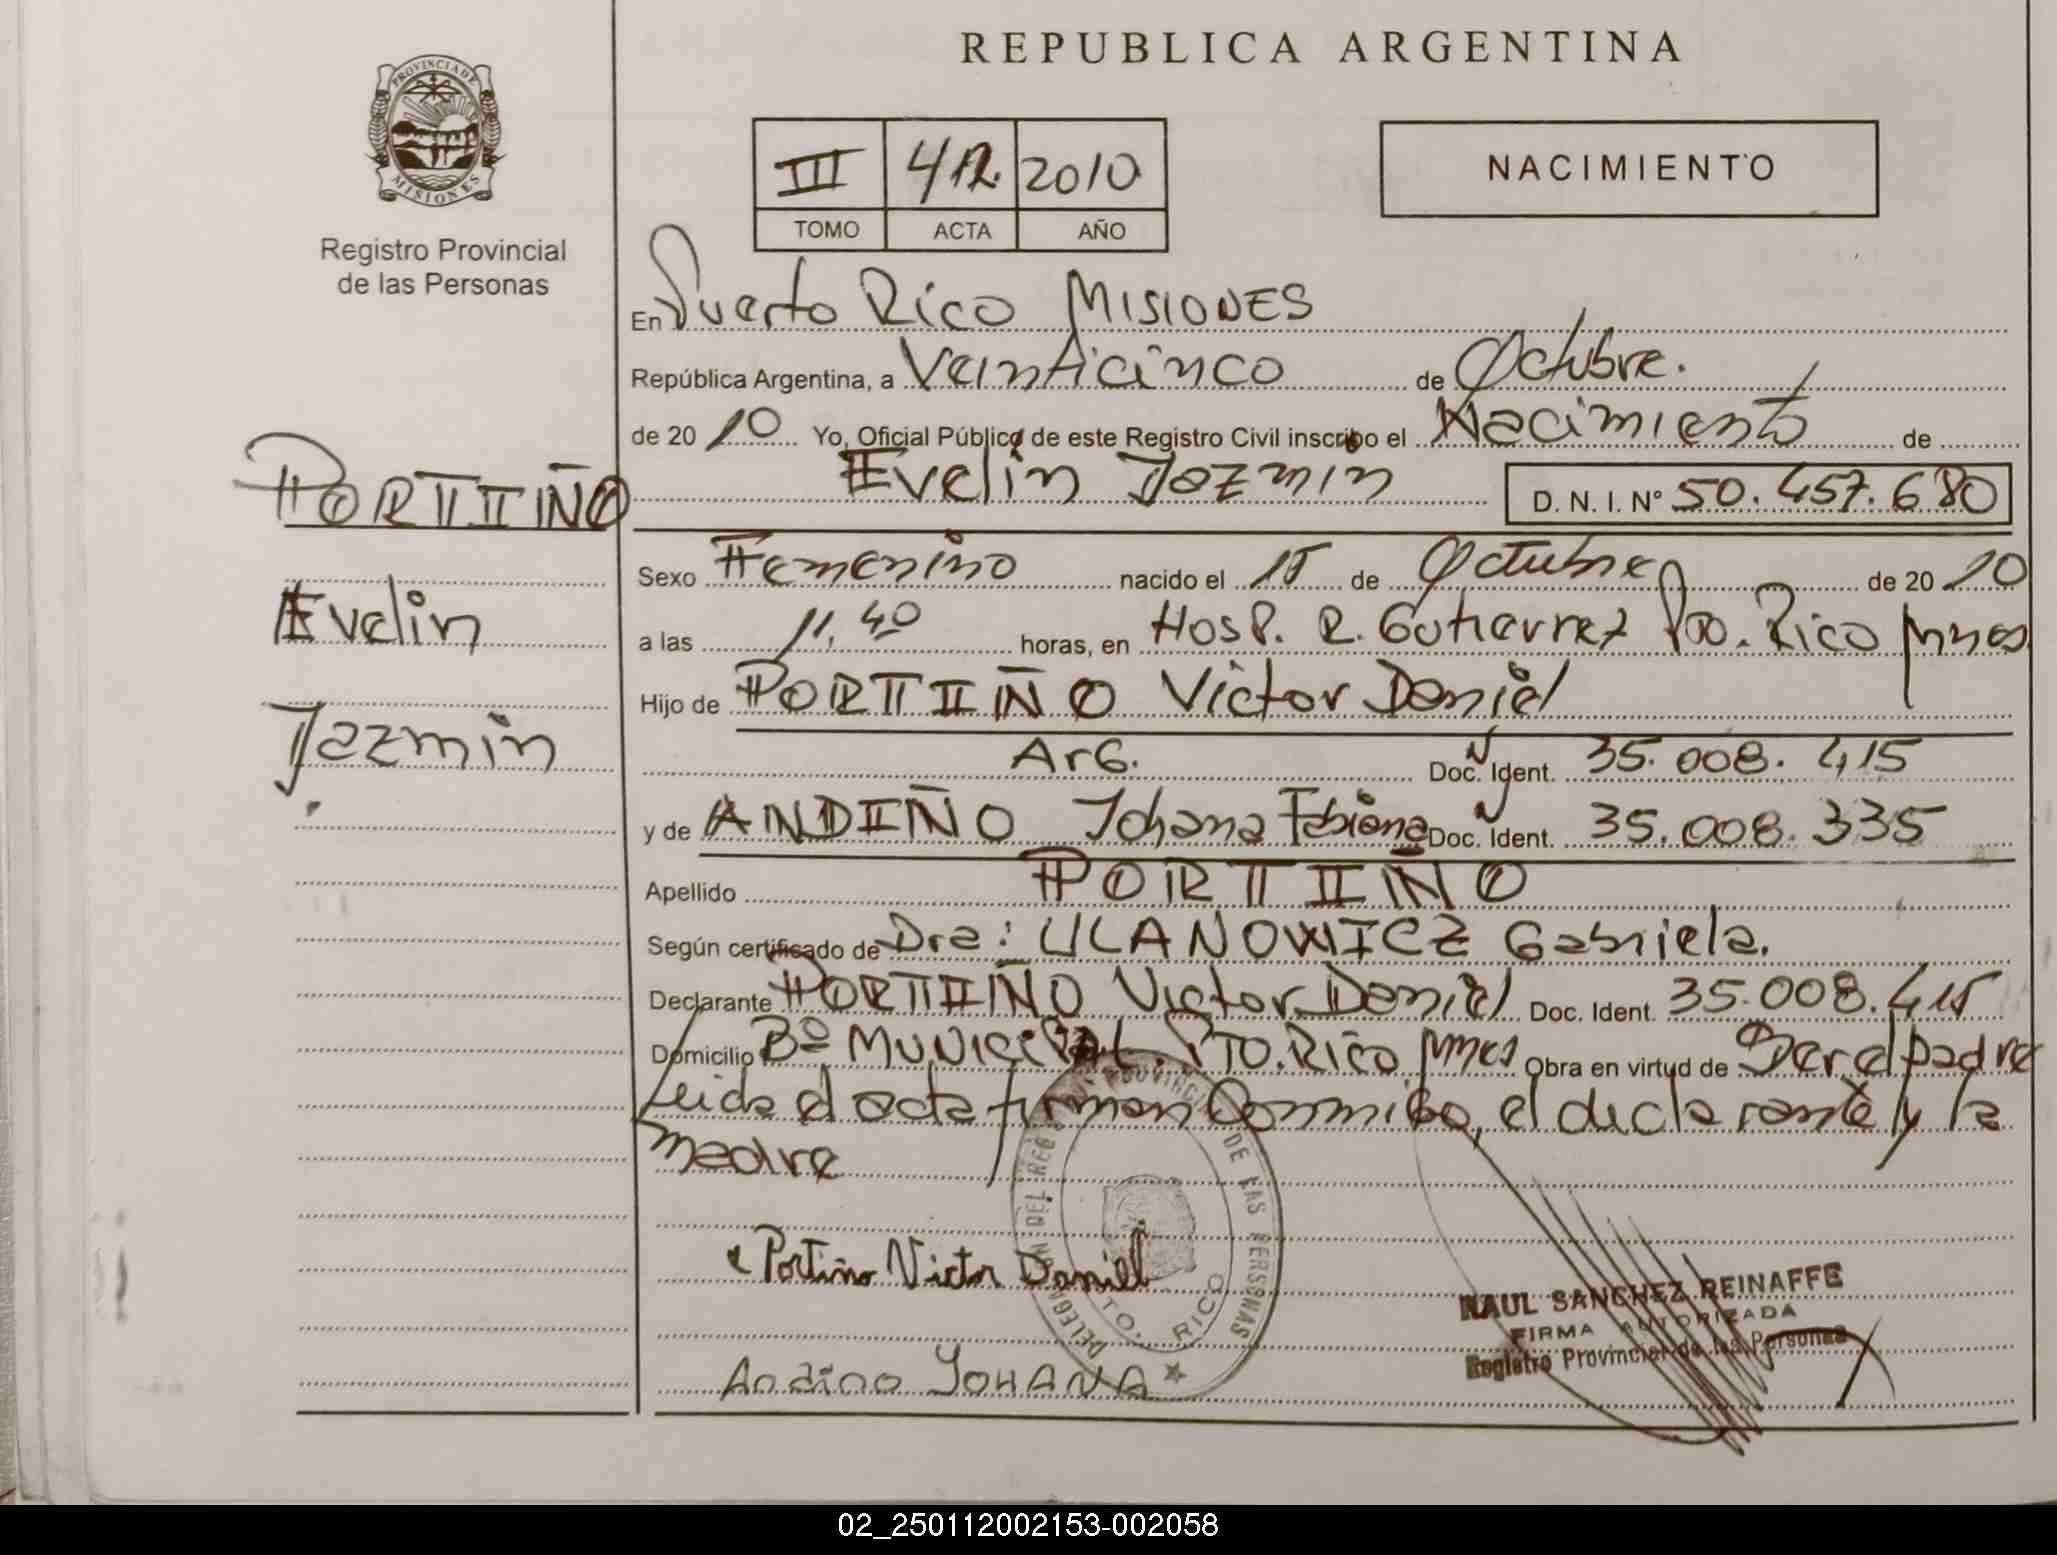 REPUBLICA ARGENTINA
PROVINCIA DE
MISIONES
Registro Provincial
de las Personas
III 412 2010
TOMO ACTA AÑO
NACIMIENTO
PORTIÑO
Evelin
Jazmin
En Puerto Rico MISIONES
República Argentina, a Veinticinco de Octubre.
de 20 10 Yo, Oficial Público de este Registro Civil inscribo el Nacimiento de
Evelin Jazmin D. N. I. N° 50.457.680
Sexo Femenino nacido el 15 de Octubre de 20 10
a las 11,40 horas, en Hosp. R. Gutierrez Pto. Rico Mnes.
Hijo de PORTIÑO Victor Daniel
Arg. Doc. Ident. 35.008.415
y de ANDIÑO Johana Fabiana Doc. Ident. 35.008.335
Apellido PORTIÑO
Según certificado de Dra: ULANOWICZ Gabriela.
Declarante PORTIÑO Victor Daniel Doc. Ident. 35.008.415
Domicilio Bº MUNICIPAL. PTO. Rico Mnes Obra en virtud de Ser el padre
Leida el acta firman Conmigo, el declarante y la
madre
Portiño Victor Daniel
Andino YOHANA
DELEGACION DEL REGISTRO PROVINCIAL DE LAS PERSONAS
PTO. RICO
RAUL SANCHEZ REINAFFE
FIRMA AUTORIZADA
Registro Provincial de las Personas
02_250112002153-002058